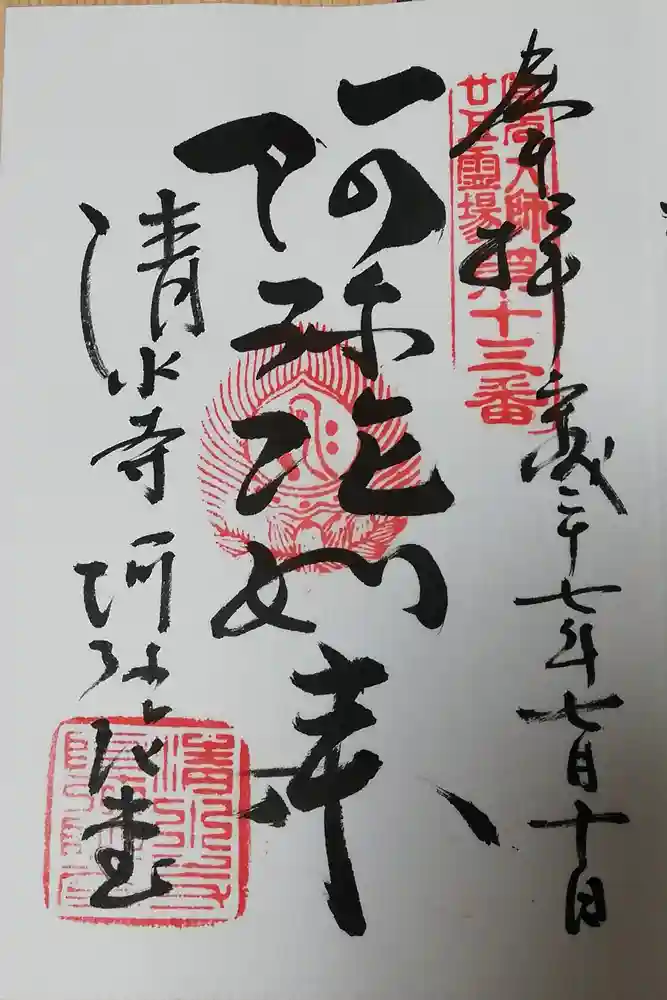 奉拝 平成二十七年七月十日
圓光大師
廿五霊場
第十三番
阿弥陀如来
清水寺 阿弥陀堂